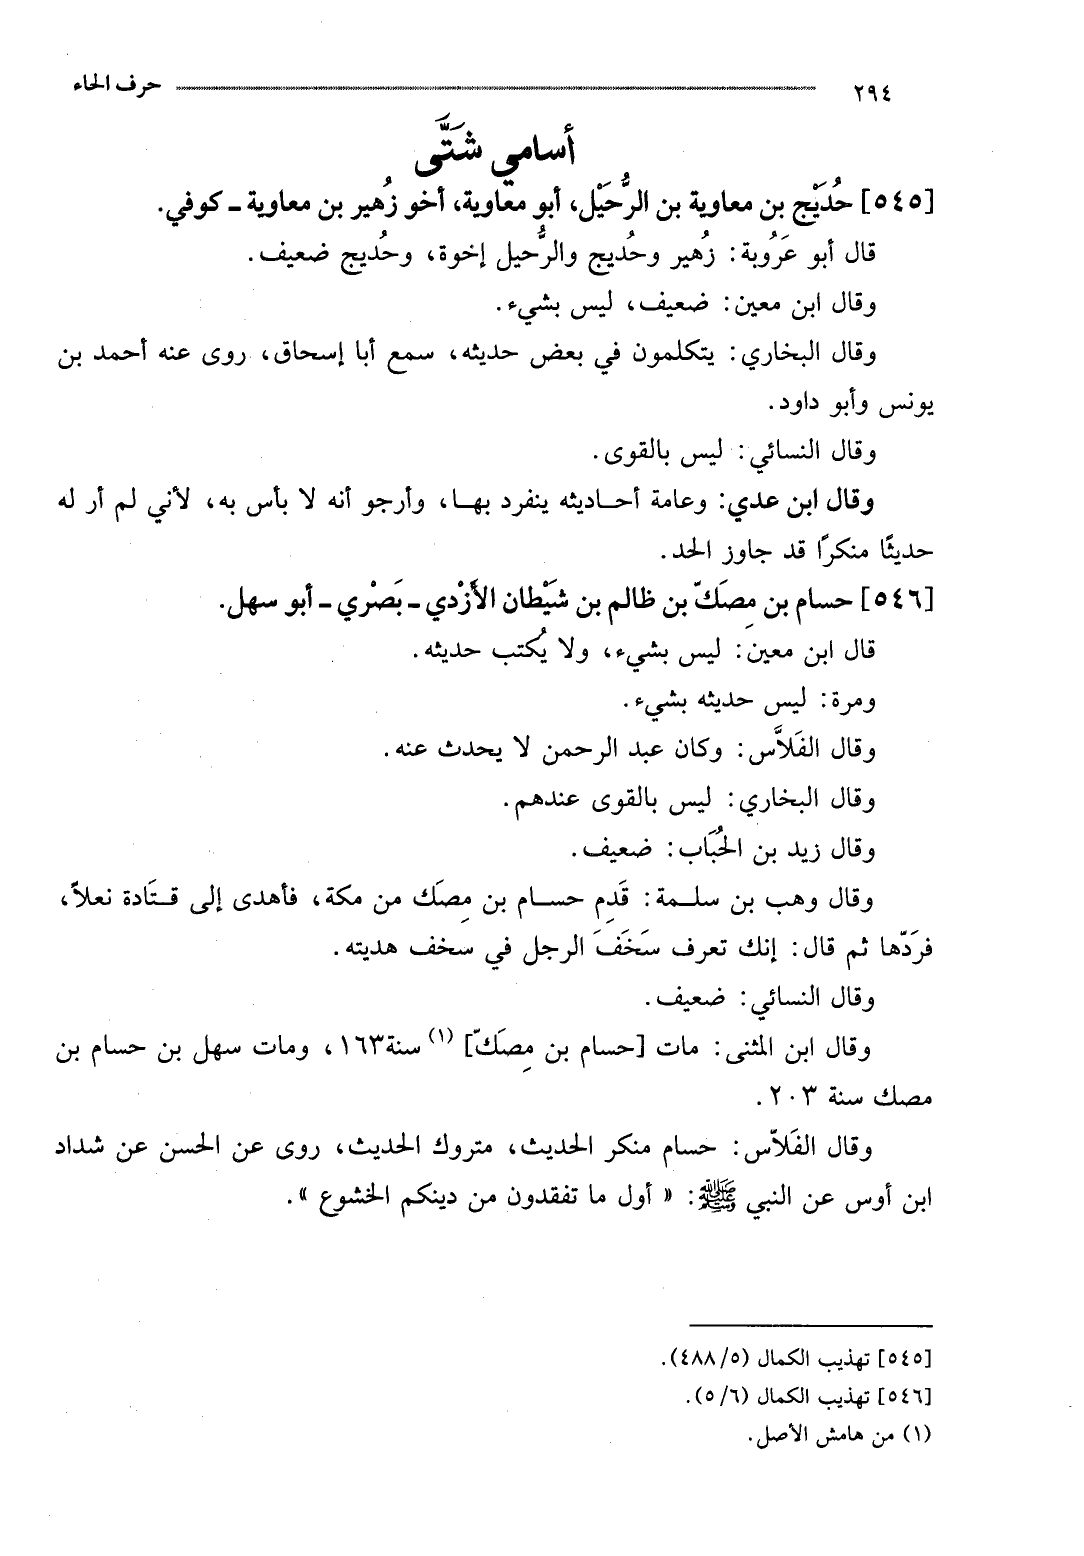 ٢٩٤ حرف الحاء
أسامي شَتَّى
[٥٤٥] حُدَيْج بن معاوية بن الرُّحَيْل، أبو معاوية، أخو زُهير بن معاوية ـ كوفي.
قال أبو عَرُوبة: زُهير وحُديج والرُّحيل إخوة، وحُديج ضعيف.
وقال ابن معين: ضعيف، ليس بشيء.
وقال البخاري: يتكلمون في بعض حديثه، سمع أبا إسحاق، روى عنه أحمد بن
يونس وأبو داود.
وقال النسائي: ليس بالقوى.
وقال ابن عدي: وعامة أحـاديثه ينفرد بهـا، وأرجو أنه لا بأس به، لأني لم أر له
حديثًا منكرًا قد جاوز الحد.
[٥٤٦] حسام بن مِصَكّ بن ظالم بن شَيْطان الأَزْدي ـ بَصْري ـ أبو سهل.
قال ابن معين: ليس بشيء، ولا يُكتب حديثه.
ومرة: ليس حديثه بشيء.
وقال الفَلاَّس: وكان عبد الرحمن لا يحدث عنه.
وقال البخاري: ليس بالقوى عندهم.
وقال زيد بن الحُبَاب: ضعيف.
وقال وهب بن سلـمة: قَدِم حسـام بن مِصَك من مكة، فأهدى إلى قـتَادة نعلاً،
فردَّها ثم قال: إنك تعرف سَخَفَ الرجل في سخف هديته.
وقال النسائي: ضعيف.
وقال ابن المثنى: مات [حسام بن مِصَكّ] (١) سنة١٦٣، ومات سهل بن حسام بن
مصك سنة ٢٠٣.
وقال الفَلاّس: حسام منكر الحديث، متروك الحديث، روى عن الحسن عن شداد
ابن أوس عن النبي ﷺ: « أول ما تفقدون من دينكم الخشوع ».
[٥٤٥] تهذيب الكمال (٤٨٨/٥).
[٥٤٦] تهذيب الكمال (٥/٦).
(١) من هامش الأصل.